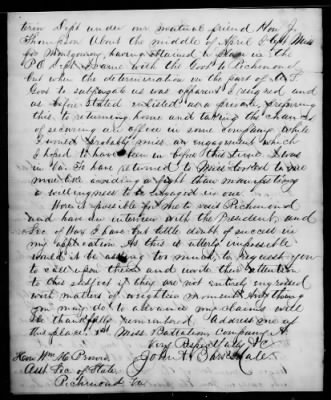 terior Dept under our mutual friend Hon J.
Thompson About the middle of April I left Miss
for Montgomery, having obtained a place in the
P.O. Dept I came with the Govt to Richmond,
but when the determination on the part of the
Govt to subjugate us was apparent I resigned and
as before stated enlisted as a private, preferring
this to returning home and taking the chances
of securing an office in some company while
I would probably miss an engagement which
I hoped to have been in before this time. I was
in Va. To have returned to Miss looked to me
more like avoiding a fight than manifesting
a willingness to be engaged in one.
Were it possible for me to visit Richmond
and have an interview with the President, and
Sec of War I have but little doubt of success in
my application As this is utterly impossible
would it be asking too much, to request you
to call upon them and invite their attention
to this subject if they are not entirely engrossed
with matters of weightier moment Anything
you may do to advance my claims will
be thankfully remembered. Address me at
this place, 1st Miss Battalion, Company A.
Very Respectfully &c
John A Barksdale
Hon Wm M Browne
Asst Sec of State
Richmond Va